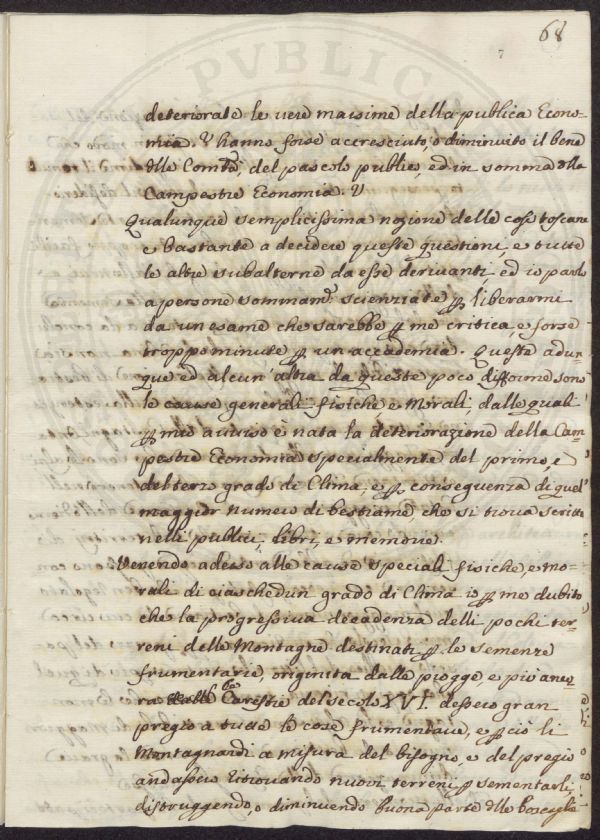 68
7
PVBLICA
deteriorate le vere massime della publica Econo-
mia. V'hanno forse accresciuto, o diminuito il bene
delle Comtà, del pascolo publico, ed in somma della
Campestre Economia. V
Qualunque semplicissima nozione delle cose toscane
e bastante a decidere queste questioni, e tutte
le altre subalterne da esse derivanti ed io parlo
a persone sommam.te scienziate p liberarmi
da un esame che sarebbe p me critico, e forse
troppo minuto p un accademia. Queste adun-
que ed alcun' altra da queste poco difforme sono
le cause generali fisiche e Morali, dalle quali
p mio avviso è nata la deteriorazione della Cam-
pestre Economia specialmente del primo, e
del terzo grado di Clima, e p conseguenza di quel
maggior numero di bestiame, che si trova scritto
nelli publici libri, e memorie.
Venendo adesso alle cause speciali fisiche, e mo-
rali di ciaschedun grado di Clima io p me dubito
che la progressiva decadenza delli pochi ter-
reni delle Montagne destinati p le semenze
frumentarie, originata dalle piogge, e più anco-
ra Carestie del secolo XVI. dessero gran
pregio a tutte le cose frumentarie, e p ciò li
Montagnardi a misura del bisogno, e del pregio
andassero ritrovando nuovi terreni p sementarli,
distruggendo, o diminuendo buona parte delle boscaglie